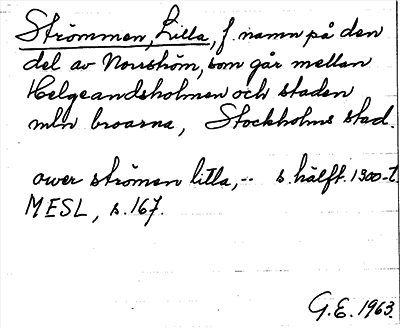 Strömmen, Lilla, f. namn på den
del av Norrström, som går mellan
Helgeandsholmen och staden
mln broarna, Stockholms stad.
ower strömen litla, -- s. hälft. 1300-t.
MESL, s. 167.
G.E. 1963.